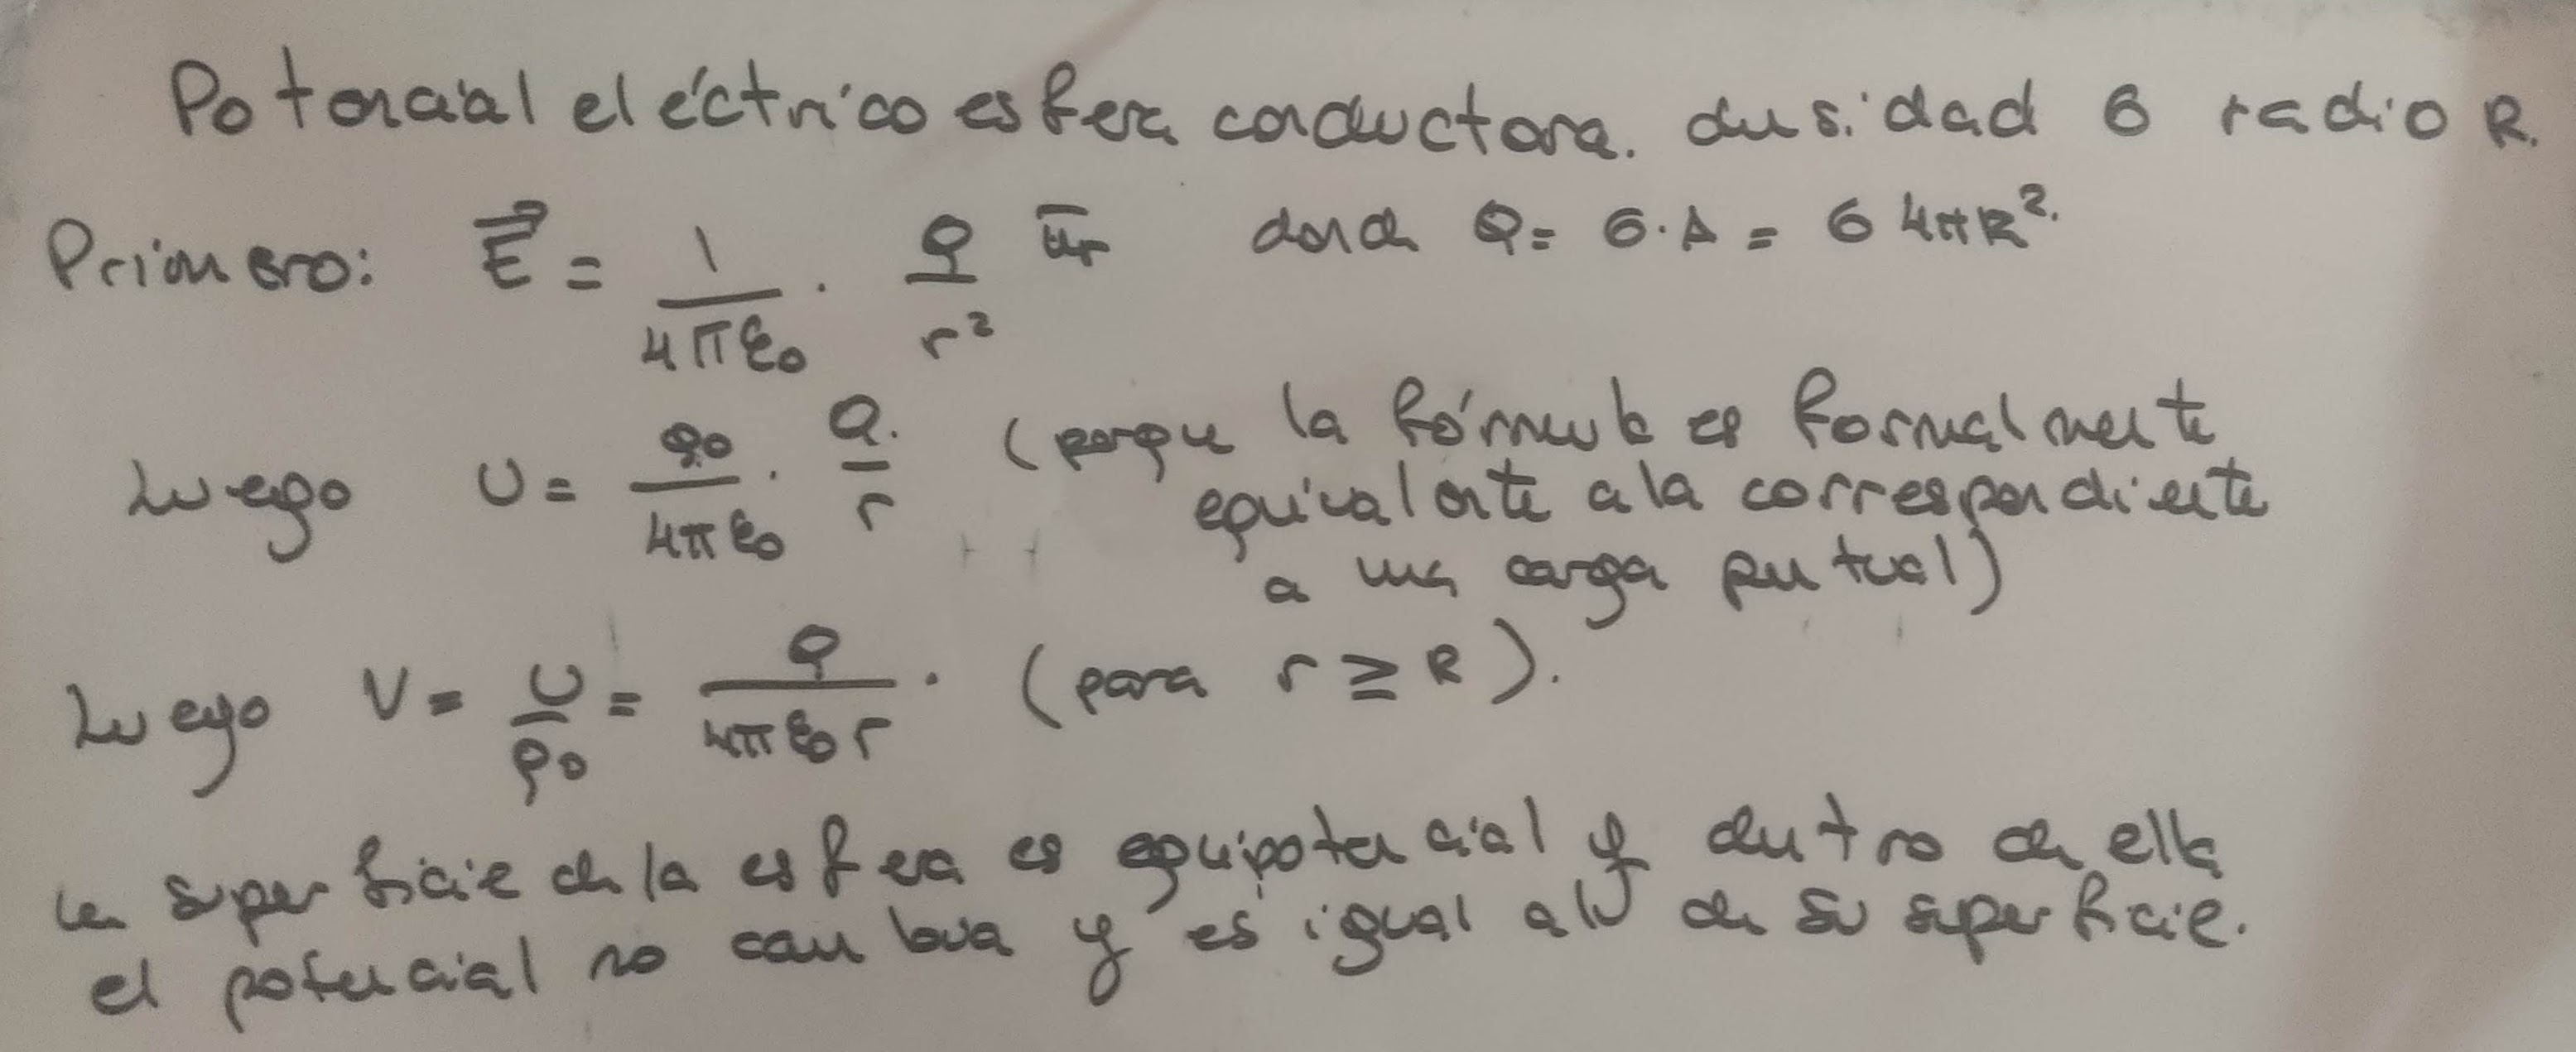 Potencial eléctrico esfera conductora. densidad σ radio R.
Primero: E⃗ = 1/(4πε₀) · Q/r² u̅r donde Q = σ·A = σ4πR².
Luego U = q₀/(4πε₀) · Q/r (porque la fórmula es formalmente
equivalente a la correspondiente
a una carga puntual)
Luego V = U/q₀ = Q/(4πε₀r) · (para r ≥ R).
la superficie de la esfera es equipotencial y dentro de ella
el potencial no cambia y es igual al de su superficie.